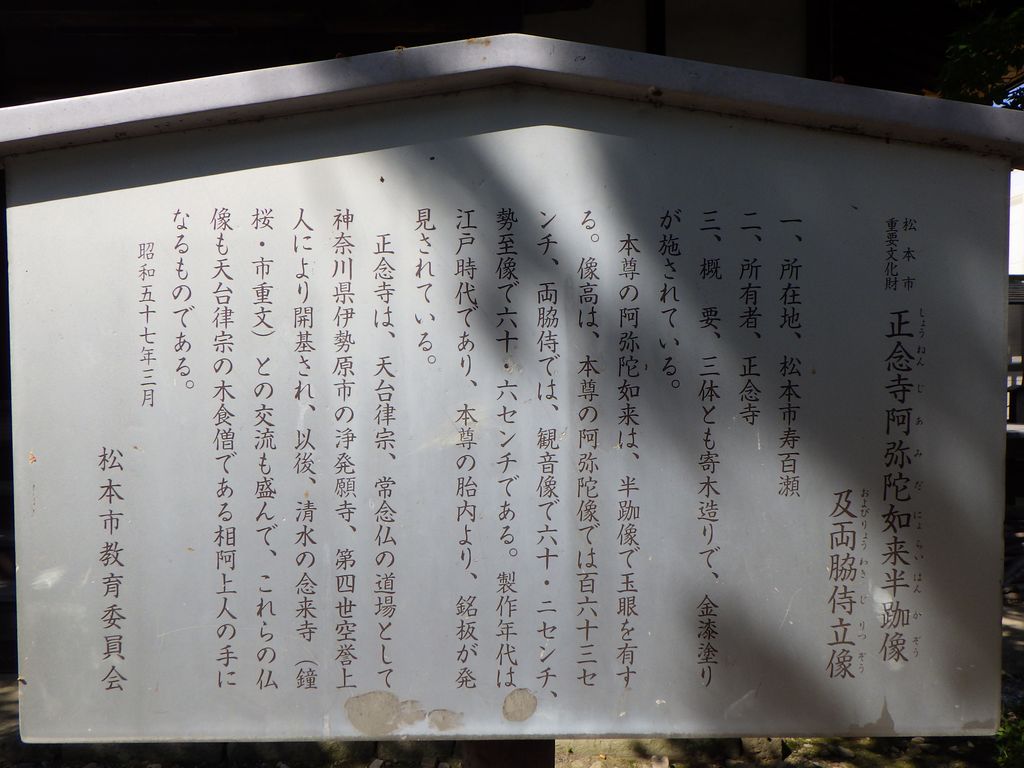 松本市
重要文化財
正念寺阿弥陀如来半跏像
しょうねんじあみだにょらいはんかぞう
及両脇侍立像
およびりょうわきじりつぞう
一、所在地、松本市寿百瀬
二、所有者、正念寺
三、概　要、三体とも寄木造りで、金漆塗り
が施されている。
本尊の阿弥陀如来は、半跏像で玉眼を有す
る。像高は、本尊の阿弥陀像では百六十三セ
ンチ、両脇侍では、観音像で六十・二センチ、
勢至像で六十・六センチである。製作年代は
江戸時代であり、本尊の胎内より、銘板が発
見されている。
正念寺は、天台律宗、常念仏の道場として
神奈川県伊勢原市の浄発願寺、第四世空誉上
人により開基され、以後、清水の念来寺（鐘
桜・市重文）との交流も盛んで、これらの仏
像も天台律宗の木食僧である相阿上人の手に
なるものである。
昭和五十七年三月
松本市教育委員会